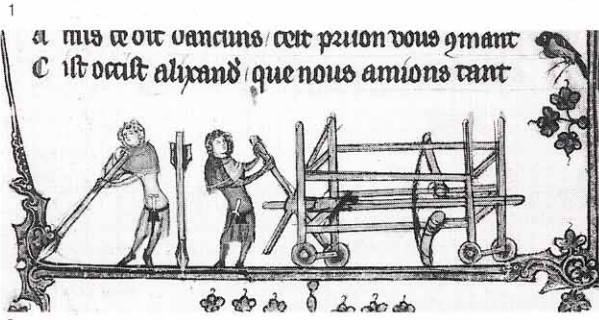 1
A mis ce dit dancuns / cest prison vous ꝯmant
C ist occist alixand' / que nous amions tant